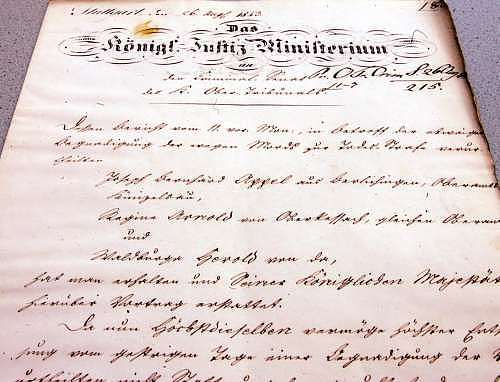 Stuttgart den 26. Aug. 1843.
Das
Königl. Justiz Ministerium
an
den Criminal-Senat
des K. Ober-Tribunals
215.
Dessen Bericht vom 11. vor. Mon., in Betreff der etwaigen
Begnadigung der wegen Mords zur Todes-Strafe verur-
theilten
Joseph Bernhard Appel aus Berlichingen, Oberamts
Künzelsau,
Regine Arnold von Oberkessach, gleichen Oberamts
und
Waldburga Herold von da,
hat man erhalten und Seiner Königlichen Majestät
hierüber Vortrag erstattet.
Da nun Höchstdieselben vermöge höchster Ent-
vom gestrigen Tage einer Begnadigung der
urtheilten nicht Statt